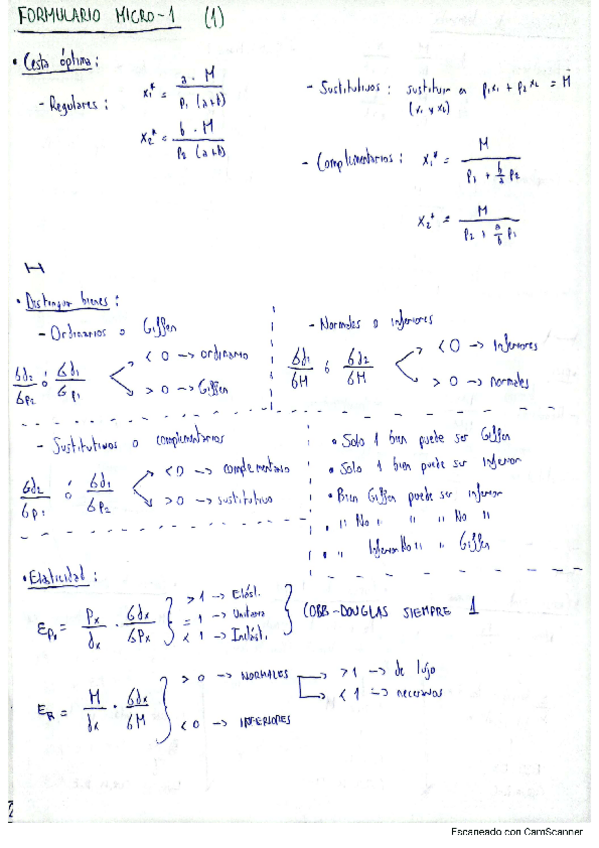 FORMULARIO MICRO-1 (1)
• Cesta óptima:
- Regulares: x₁* = a · M / p₁ (a+b)
x₂* = b · M / p₂ (a+b)
- Sustitutivos: sustituir a p₁x₁ + p₂x₂ = M
(x₁ y x₂)
- Complementarios: x₁* = M / p₁ + b/a p₂
x₂* = M / p₂ + a/b p₁
• Distinguir bienes:
- Ordinarios o Giffen
δd₂/δp₂ ó δd₁/δp₁ < 0 → ordinario
> 0 → Giffen
- Normales o inferiores
δd₁/δM ó δd₂/δM < 0 → Inferiores
> 0 → normales
- Sustitutivos o complementarios
δd₂/δp₁ ó δd₁/δp₂ < 0 → complementario
> 0 → sustitutivo
• Solo 1 bien puede ser Giffen
• Solo 1 bien puede ser Inferior
• Bien Giffen puede ser inferior
• " No " " " No "
• " Inferior No " " Giffen
• Elasticidad:
Ep₁ = Px/dx · δdx/δPx > 1 → Elást.
= 1 → Unitaria
< 1 → Inelást.
COBB-DOUGLAS SIEMPRE 1
E_R = M/dx · δdx/δM > 0 → NORMALES > 1 → de lujo
< 1 → necesarios
< 0 → INFERIORES
Escaneado con CamScanner